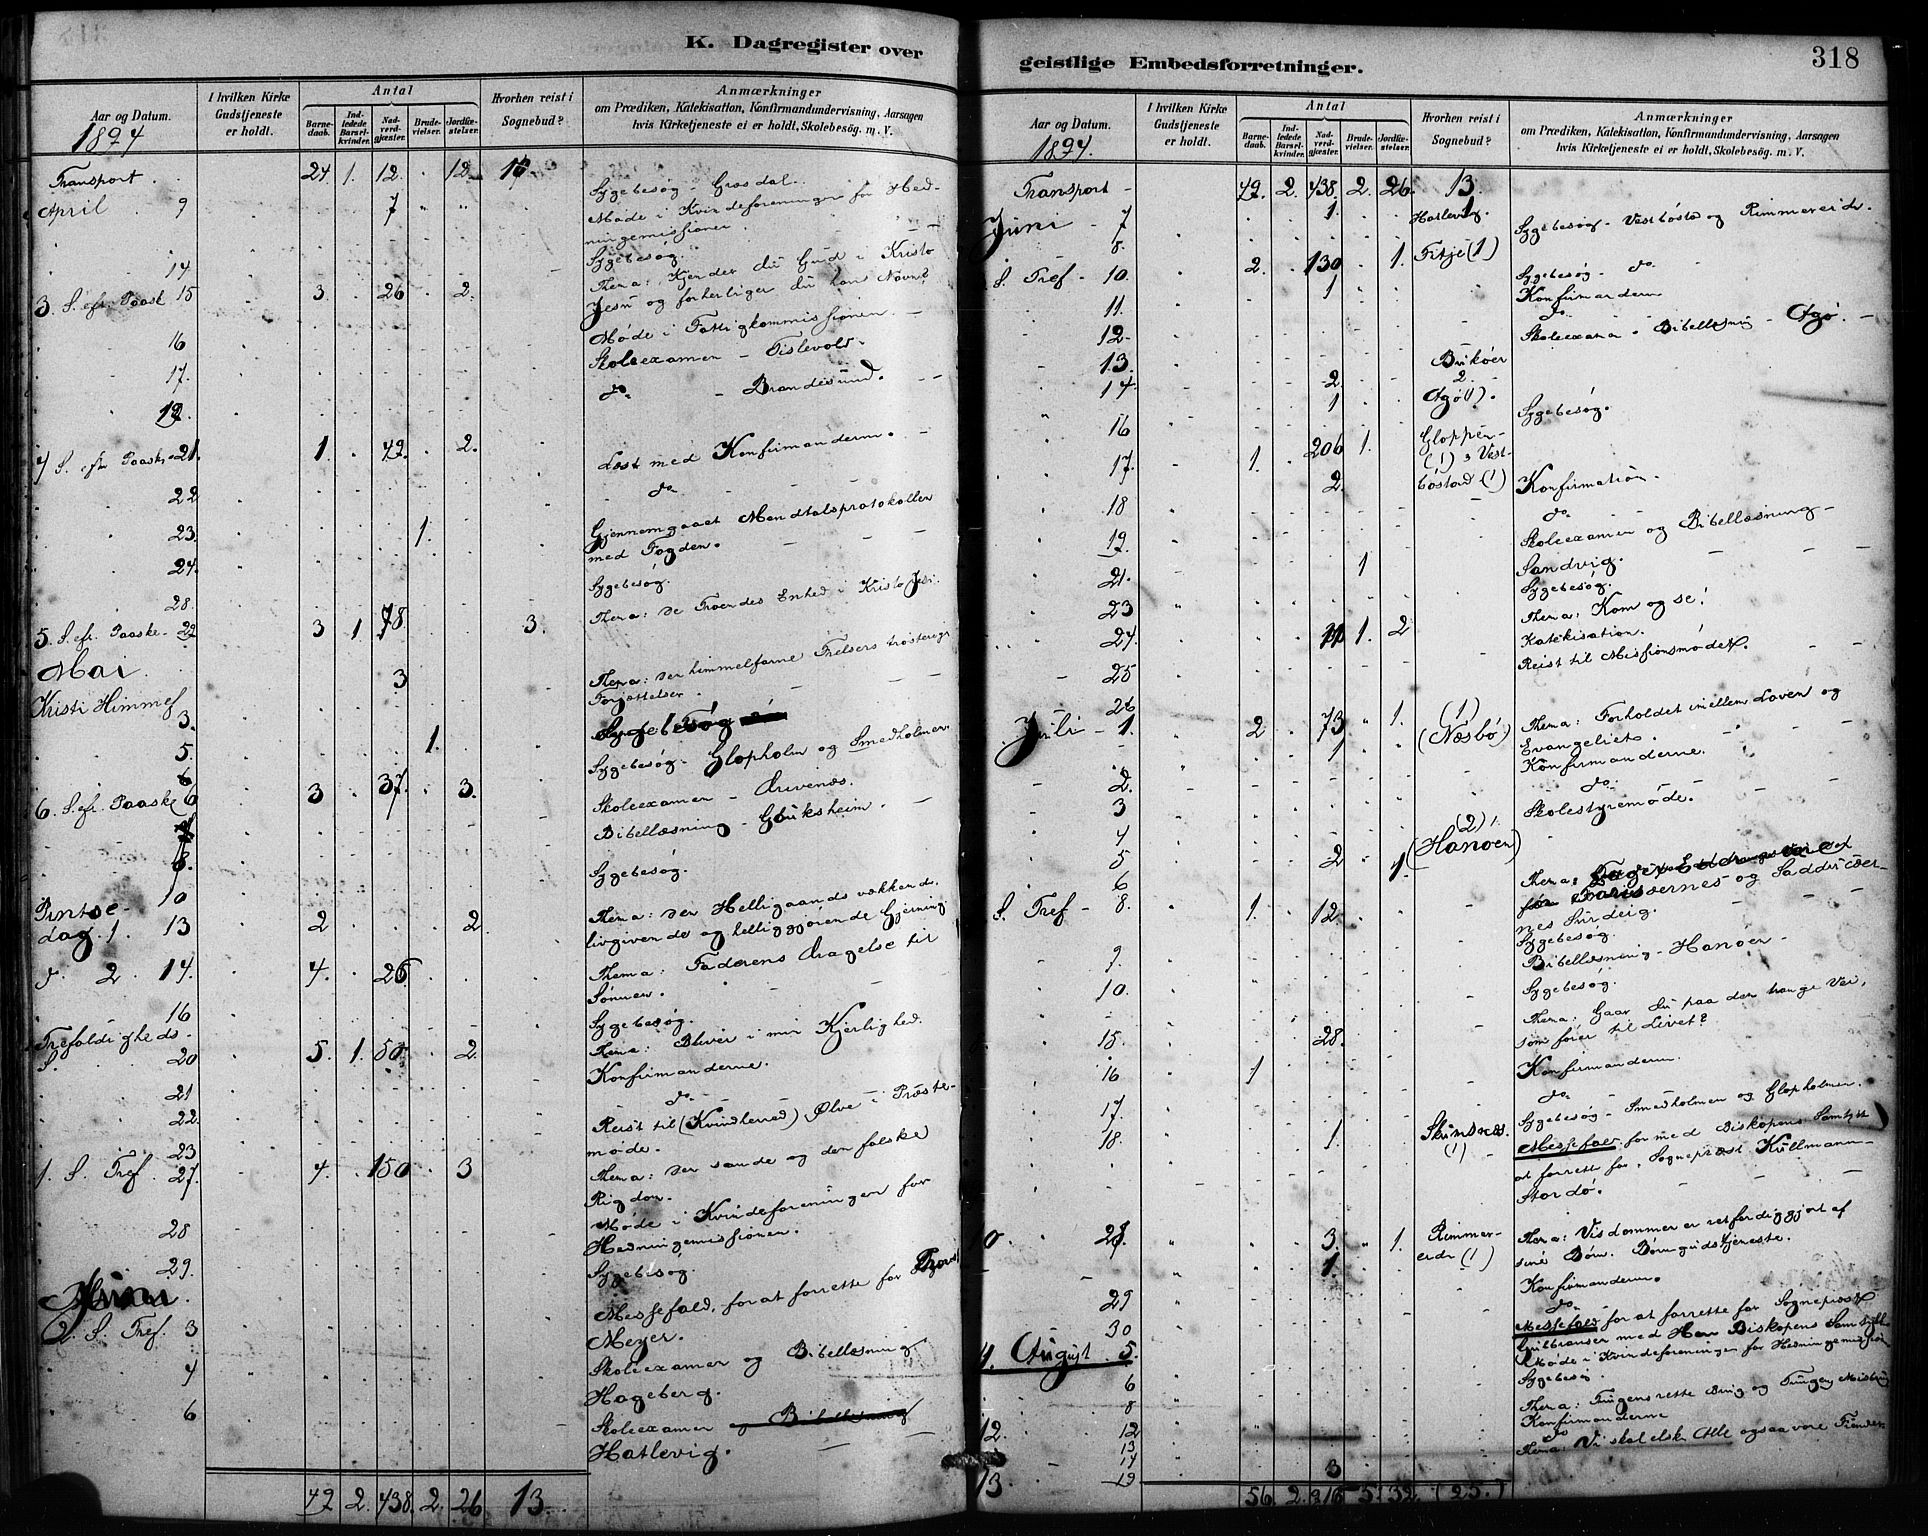 K. Dagregister over
Aar og Datum.
1894
I hvilken Kirke Gudstjeneste er holdt.
Antal
Barnedaab.
Indledede Barselkvinder.
Nadverdgjæster.
Brudevielser.
Jordfæstelser.
Hvorhen reist i Sognebud?
Anmærkninger
om Prædiken, Katekisation, Konfirmandundervisning, Aarsagen
hvis Kirketjeneste ei er holdt, Skolebesøg. m. V.
Transport 24 1. 12. 12. 10.
Sygebesøg - Grosdal.
April 9 7
Møde i Kvindeforeningen for Hed-
ningemissionen.
14
Sygebesøg.
3 S. eft. Paask 15 3. 26 2.
Thema: Kjender du Gud i Kristo
Jesu og forherliger du hans Navn?
16
Møde i Fattigkommissionen
17.
Skoleexamen - Tislevold.
do. - Brandesund.
4 S. eft Paaske 21. 1. 42. 2.
Læst med Konfirmanderne.
22
do
23. 1.
Gjennemgaaet Mandtalsprotokollen
med Fogden.
24.
Sygebesøg.
28.
Thema: De Troendes Enhed i Kristo Jesu.
5. S. eft. Paaske 29 3 1. 78 3.
Mai 3
Thema: Den himmelfarne Frelsers trøsterige
Forjættelser.
Kristi Himmelf 3.
5. 1.
Sygebesøg - Glopholm og Smedholmen
6. S. eft. Paaske 6 3 37. 3.
Skoleexamen - Drivenæs.
Bibellæsning - Gluksheim.
8.
Sygebesøg.
10
Pintse-
dag. 1. 13 2 2.
Thema: Den Helligaands vækkende,
livgivende og helliggjørende Gjerning.
2 14. 4. 26
Thema: Faderens Dragelse til
Sønnen.
16
Sygebesøg.
Trefoldigheds-
S. 20 5. 1. 50. 2.
Thema: Bliver i min Kjerlighed.
Konfirmanderne.
21
do
22.
Reist til (Kvindherred) Ølve i Præste-
møde.
23
1. S. Tref. 27. 4. 150 3
Thema: Den sande og den falske
Rigdom.
28
Møde i Kvindeforeningen for
Hedningemissionen.
29.
Sygebesøg.
Juni
2. S. Tref. 3
Messefald, for at forrette for Provst
Meyer.
4
Skoleexamen og Bibellæsning
Hageberg.
6
Skoleexamen og Bibellæsning
Hatlevig.
47 2. 438. 2. 26 13.
geistlige Embedsforretninger.
318
Aar og Datum.
1894.
I hvilken Kirke Gudstjeneste er holdt.
Antal
Barnedaab.
Indledede Barselkvinder.
Nadverdgjæster.
Brudevielser.
Jordfæstelser.
Hvorhen reist i Sognebud?
Anmærkninger
om Prædiken, Katekisation, Konfirmandundervisning, Aarsagen
hvis Kirketjeneste ei er holdt, Skolebesøg. m. V.
Transport 47. 2. 438. 2. 26. 13.
Juni 7 1. Hatlevig. 1
Sygebesøg - Vestbøsta og Rimmereide.
8
S. Tref - 10. 2. 130 1. Fitje (1)
Sygebesøg - do
11. 1
Konfirmanderne
12.
do
13. Brukøer
Skoleexamen - Bibellæsning - Agø.
14. 2. 2.
16 1 Agø (1).
Sygebesøg.
17. 1. 206 1. Glopper-
(1) 3 Vest-
2. bøstad (1)
Konfirmation.
18
do
19.
Skoleexamen og Bibellæsning
Sandvig.
21. 1
Sygebesøg.
23
Thema: Kom og se!
24. 11 1. 2
Katekisation.
25
Reist til Missionsmødet.
26
Juli 1. 2 73 1. (1)
(Næsbø)
Thema: Forholdet imellem Loven og
Evangeliet.
Konfirmanderne.
2.
do.
3
Skolestyremøde.
4 (2)
5 2 1. (Hanøen)
6
S. Tref - 8. 1. 12.
Farisæernes og Sadducæer-
nes Surdeig.
Sygebesøg.
9.
Bibellæsning - Hanøen
10.
Sygebesøg.
15. 28.
Thema: Gaar du paa den trange Vei,
som fører til Livet?
16 1
Konfirmanderne.
17.
do
Sygebesøg - Smedholmen og Glopholmen.
18. 1 (1)
Messefald for med Biskopens Samtykke
at forrette for Sognepræst Kullmann
Stordø.
10 3. 1. Rimmer-
1. eide (1)
Thema: Visdommen er retfærdiggjort af
sine Børn. Børnegudstjeneste.
29
Konfirmanderne.
30
do
4. August 5.
Messefald for at forrette for Sognepræst
med Herr Biskopens Samtykke
6
Møde i Kvindeforeningen for Hedningemission
8
Sygebesøg
12. 12
Thema: Tungens rette Brug og Tungens Misbrug
13
Konfirmanderne
14 3
do
13. 19
Thema: Vi skal elske Alle ogsaa vore Fiender
56. 2. 916 5. 32. (25.)